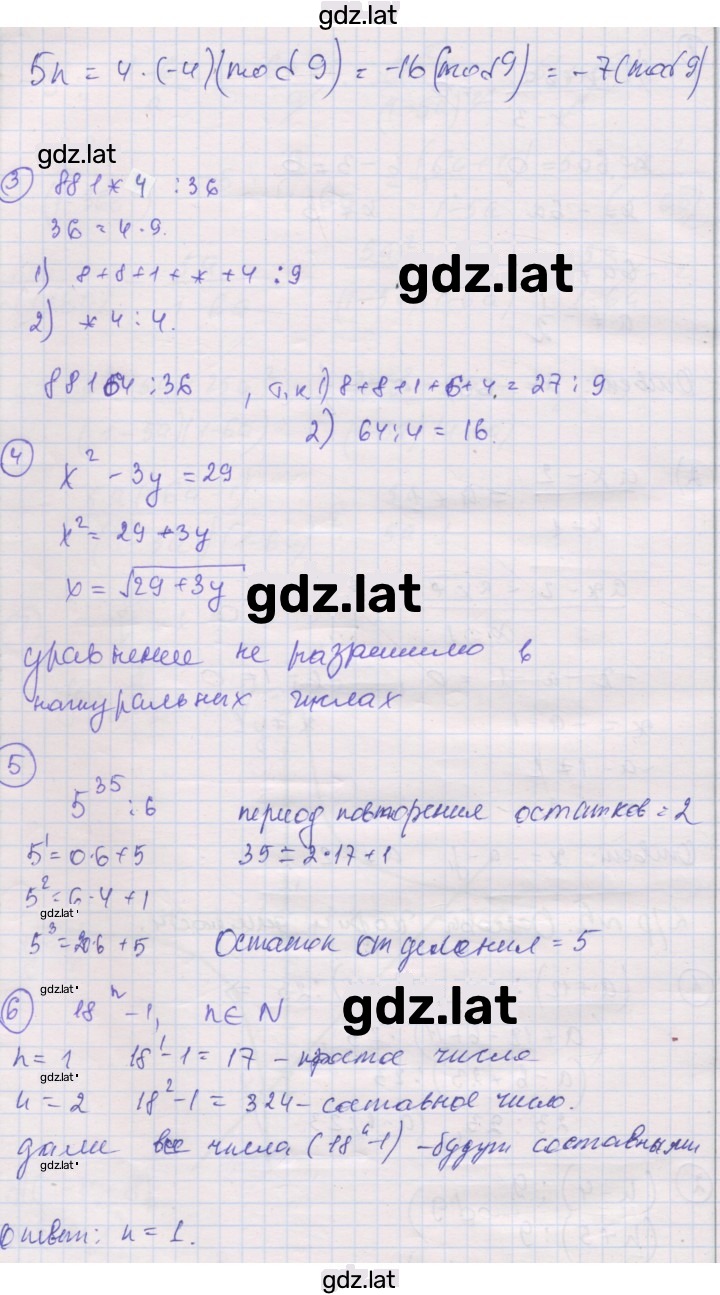 gdz.lat
5n = 4 · (-4)(mod 9) = -16(mod 9) = -7(mod 9)
gdz.lat
3 881*4 : 36
36 = 4·9.
1) 8+8+1+*+4 : 9
gdz.lat
2) *4 : 4.
88164 : 36 , т.к 1) 8+8+1+6+4 = 27 : 9
2) 64 : 4 = 16.
4 x² - 3y = 29
x² = 29 + 3y
x = √29 + 3y
gdz.lat
уравнение не разрешимо в
натуральных числах
5
5³⁵ : 6 период повторения остатков = 2
5¹ = 0·6+5 35 = 2·17+1
5² = 6·4+1
gdz.lat
5³ = 20·6+5 Остаток от деления = 5
gdz.lat
6 18ⁿ - 1, n ∈ N
gdz.lat
n = 1 18¹ - 1 = 17 - простое число
gdz.lat
n = 2 18² - 1 = 324 - составное число.
далее все числа (18ⁿ - 1) - будут составными
gdz.lat
Ответ: n = 1.
gdz.lat